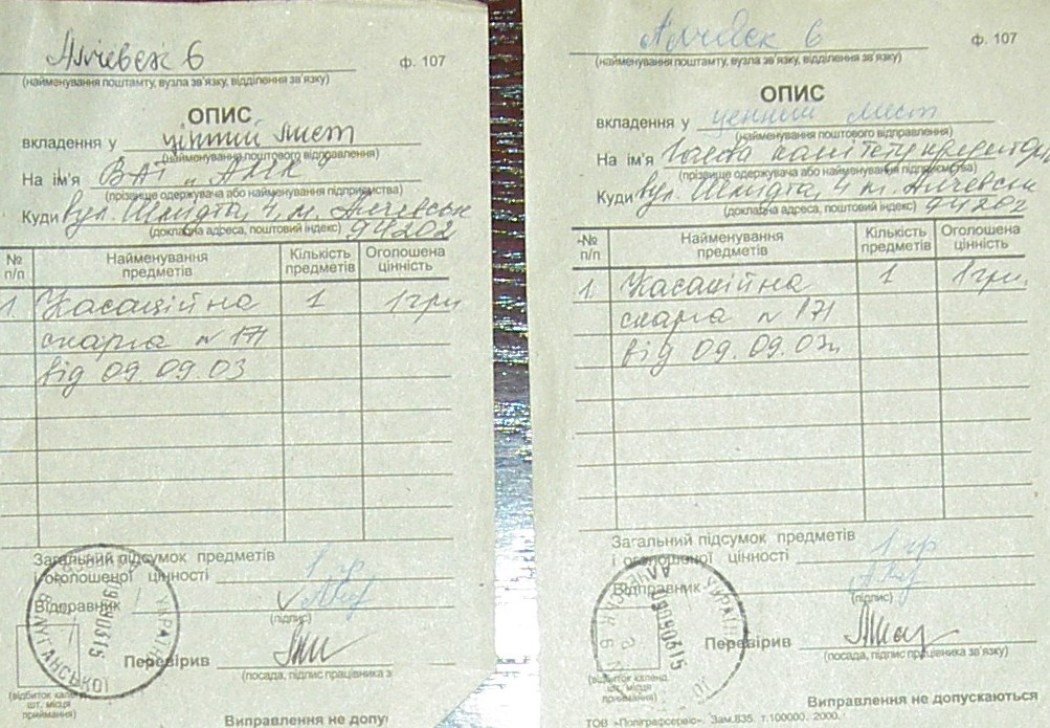 Алчевск 6
ф. 107
(найменування поштамту, вузла зв'язку, відділення зв'язку)
ОПИС
вкладення у цінний лист
(найменування поштового відправлення)
На ім'я ВАТ "АМК"
(прізвище одержувача або найменування підприємства)
Куди вул. Шмидта, 4, м. Алчевськ
(докладна адреса, поштовий індекс) 94202
№ п/п Найменування предметів Кількість предметів Оголошена цінність
1. Касаційна 1 1 грн
скарга № 171
від 09.09.03
Загальний підсумок предметів
і оголошеної цінності 1 гр
Відправник
(підпис)
Перевірив
(посада, підпис працівника з
(відбиток календ.
шт. місця
приймання)
Виправлення не допу
УКРАЇНА
ЛУГАНСЬКОЇ
Алчевск 6
ф. 107
(найменування поштамту, вузла зв'язку, відділення зв'язку)
ОПИС
вкладення у ценний лист
(найменування поштового відправлення)
На ім'я Голова комітету кредиторів
(прізвище одержувача або найменування підприємства)
Куди вул. Шмидта, 4 м. Алчевськ
(докладна адреса, поштовий індекс) 94202
№ п/п Найменування предметів Кількість предметів Оголошена цінність
1. Касаційна 1 1 грн.
скарга № 171
від 09.09.03
Загальний підсумок предметів
і оголошеної цінності 1 гр
Відправник
(підпис)
Перевірив
(посада, підпис працівника зв'язку)
(відбиток календ.
шт. місця
приймання)
Виправлення не допускаються
ТОВ «Поліграфсервіс». Зам.835. т.100000. 2000.